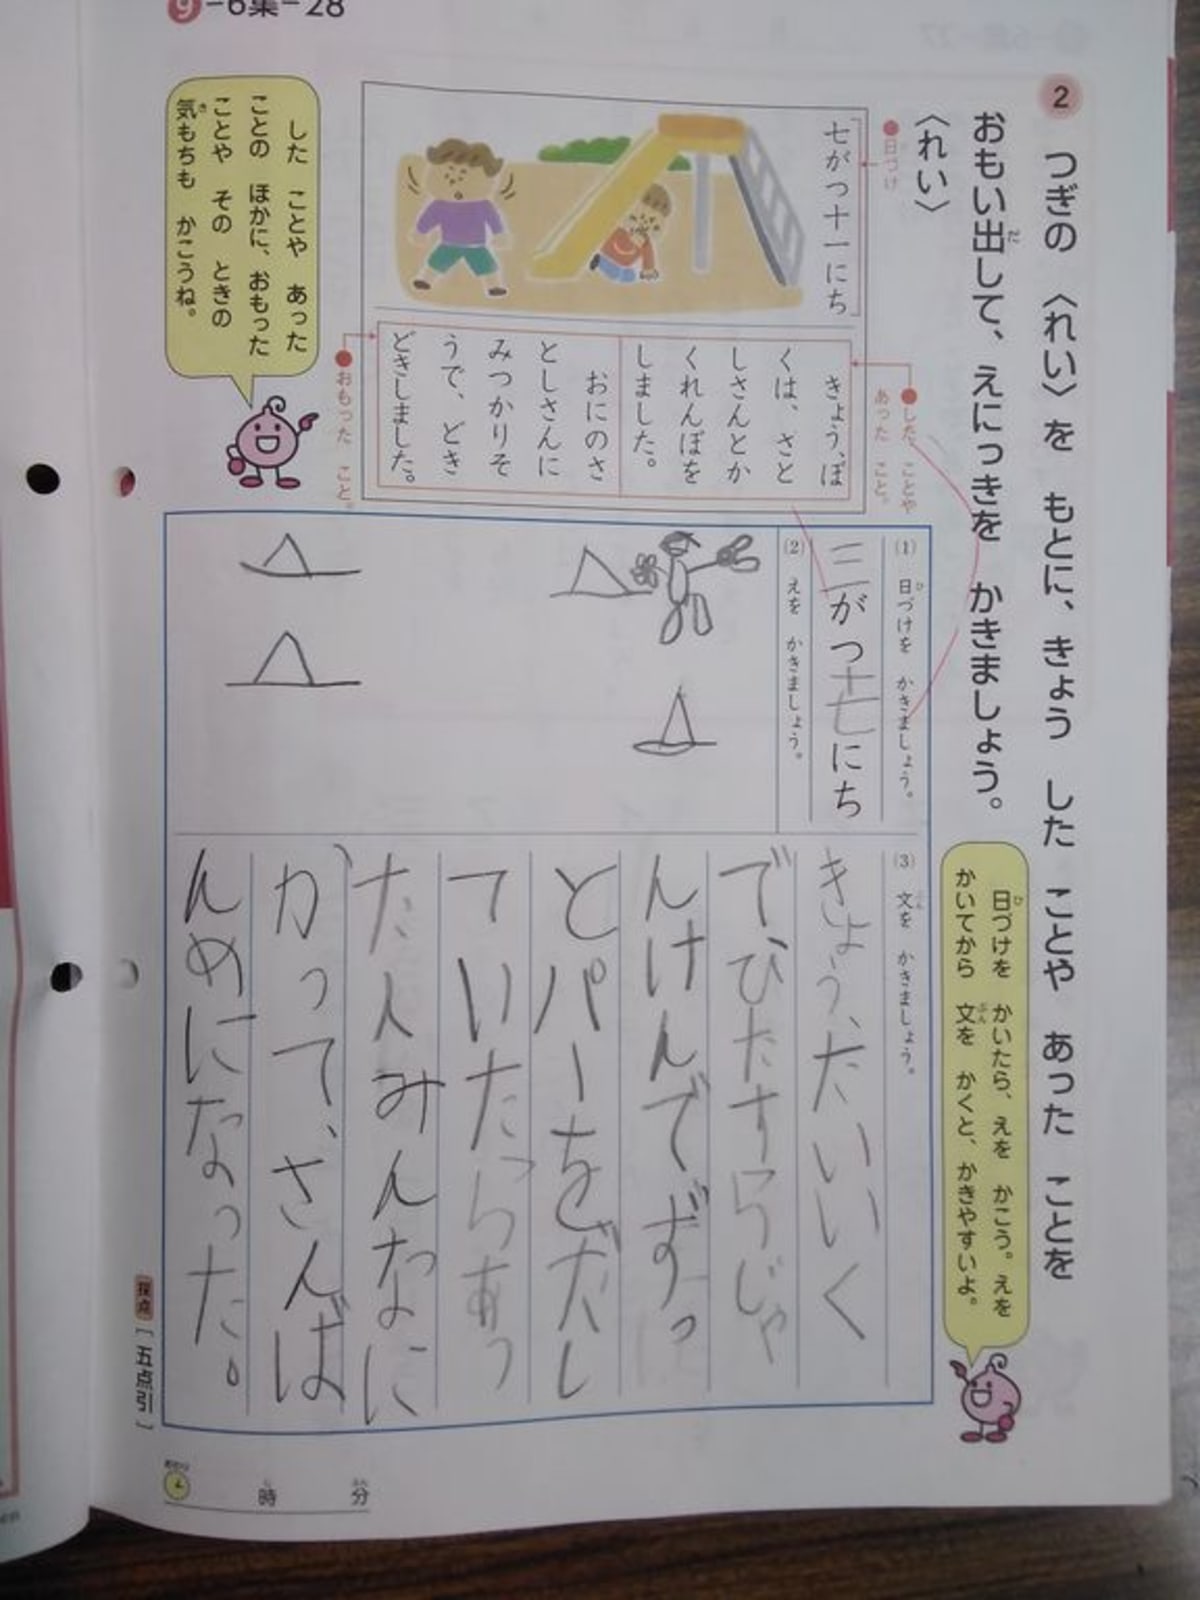 9-6集-28
2
つぎの 〈れい〉を もとに、きょう した ことや あった ことを
おもい出して、えにっきを かきましょう。
だ
〈れい〉
●日づけ
七がつ十一にち
●した ことや
あった こと。
きょう、ぼ
くは、さと
しさんとか
くれんぼを
しました。
おにのさ
としさんに
みつかりそ
うで、どき
どきしました。
●おもった こと。
した ことや あった
ことの ほかに、おもった
ことや その ときの
気もちも かこうね。
き
日づけを かいたら、えを かこう。えを
ひ
かいてから 文を かくと、かきやすいよ。
ぶん
(1) 日づけを かきましょう。
ひ
三がつ十七にち
(2) えを かきましょう。
(3) 文を かきましょう。
ぶん
きょう、たいいく
でひたすらじゃ
んけんでずっ
とパーをだし
ていたらあっ
た人みんなに
かって、さんば
んめになった。
採点[五点引]
おわり
時
じ
分
ふん